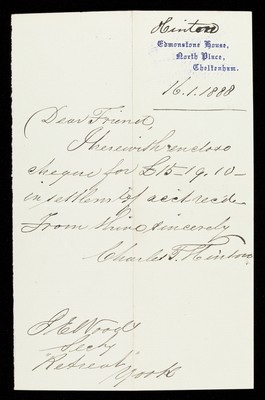 Hinton
Edmonstone House,
North Place,
Cheltenham.
16.1.1888
Dear Friend,
I herewith enclose
cheque for £15-19.10-
in settlemt of acct recd.
From thine sincerely
Charles F. Hinton
J E Wood
Secty
"Retreat"
York